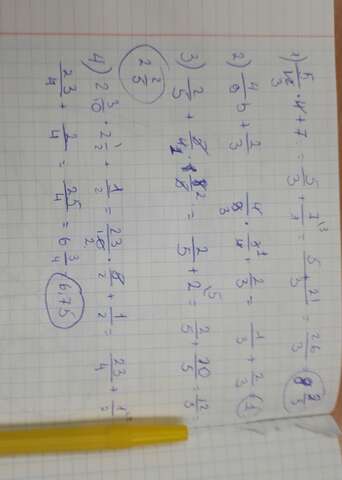 1) 5/12 · 4 + 7 = 5/3 + 7/1 = 5/3 + 21/3 = 26/3 8 2/3
2) 4/6 b + 2/3 4/8 · 1/4 + 2/3 = 1/3 + 2/3 = 1
3) 2/5 + 2/5 + 2 = 2/5 + 10/5 = 12/5 =
2 2/5
4) 2 3/10 · 2 1/2 + 1/2 = 23/10 · 5/2 + 1/2 = 23/4 + 1/2 =
23/4 + 2/4 = 25/4 = 6 3/4 6,75